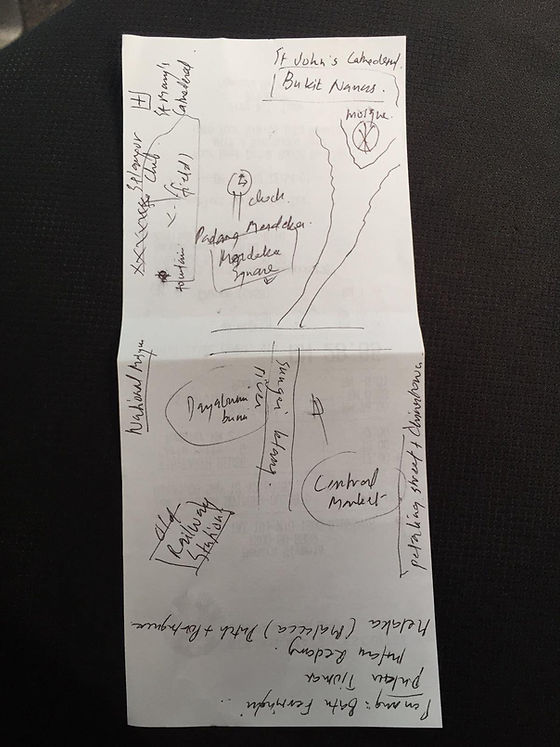 St John's Cathedral
Bukit Nanas
mosque
St Mary's
Cathedral
Selangor
Club
(field)
clock
Padang Merdeka
Merdeka
Square
fountain
National Mosque
Dayabumi
Sungai Klang
River
Central
Market
petaling street + Chinatown
Old
Railway
Station
Melaka (Malacca) Dutch + Portuguese
Pulau Redang
Pulau Tioman
Penang: Batu Ferringhi...